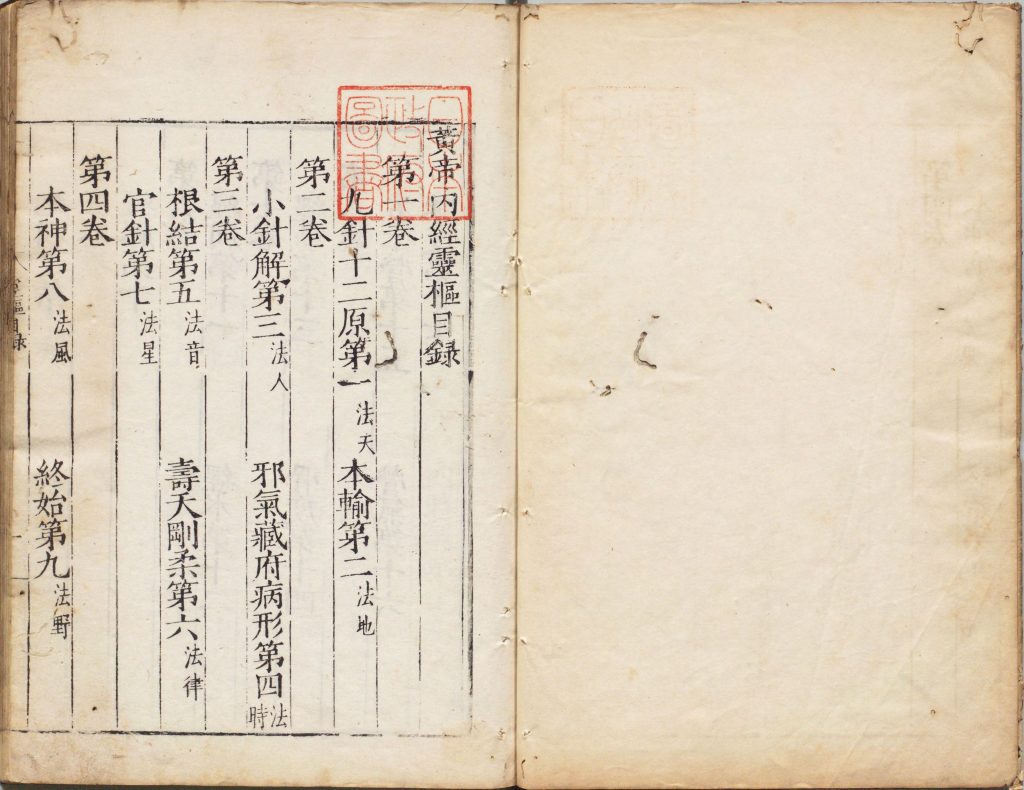 日本
政府
圖書
黃帝内經靈樞目録
第一卷
九針十二原第一 法天 本輸第二 法地
第二卷
小針解第三 法人 邪氣藏府病形第四 法時
第三卷
根結第五 法音 壽夭剛柔第六 法律
官針第七 法星
第四卷
本神第八 法風 終始第九 法野
樞目録